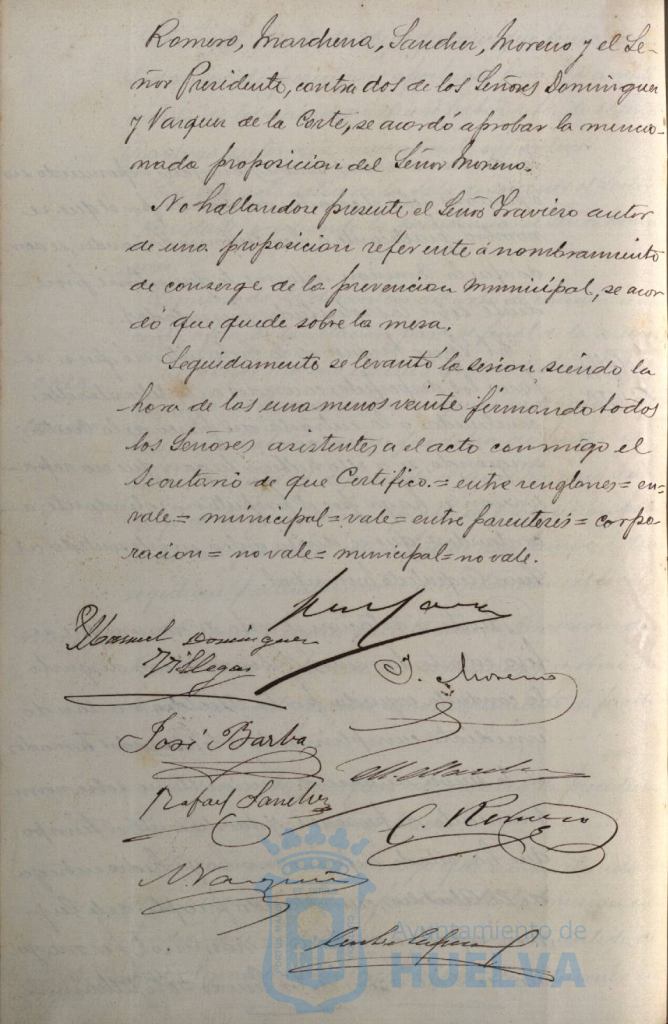 Romero, Marchena, Sanchez, Moreno y el Se-
ñor Presidente, contra dos de los Señores Dominguez
y Vazquez de la Corte, se acordó aprobar la mencio-
nada proposicion del Señor Moreno.
No hallandose presente el Señor Travieso autor
de una proposicion referente á nombramiento
de conserge de la prevencion municipal, se acor
dó que quede sobre la mesa.
Seguidamente se levantó la sesion siendo la
hora de las una menos veinte firmando todos
los Señores asistentes a el acto conmigo el
Secretario de que Certifico.= entre renglones= en-
vale= municipal= vale= entre parentesis= corpo-
racion= no vale= municipal= no vale.
Manuel Dominguez
Villegas
J. Moreno
José Barba
Rafael Sanchez
C. Romero
M. Vazquez
Ayuntamiento de
HUELVA